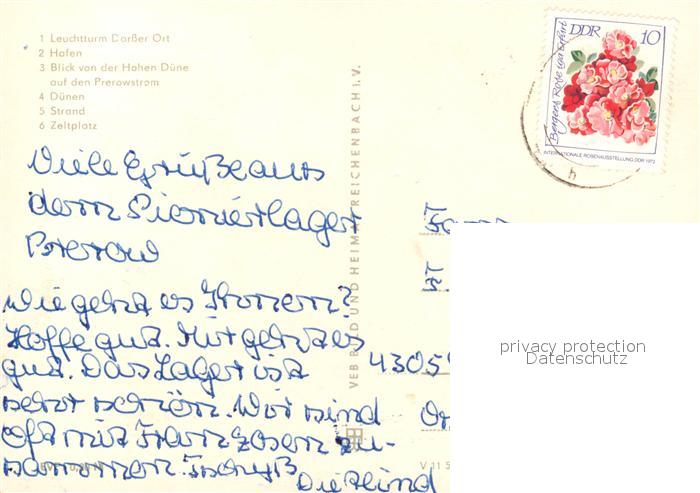 1 Leuchtturm Darßer Ort
2 Hafen
3 Blick von der Hohen Düne
auf den Prerowstrom
4 Dünen
5 Strand
6 Zeltplatz
DDR 10
Bergers Rose aus Erfurt
INTERNATIONALE ROSENAUSSTELLUNG DDR 1972
VEB BILD UND HEIMAT REICHENBACH i. V.
Viele Grüße aus
dem Pionierlager
Prerow
Wie geht es Ihnen?
Hoffe gut. Mir geht es
gut. Das Lager ist
sehr schön. Wir sind
oft mit Franzosen zu-
sammen. Gruß
4305
V 11 5
privacy protection
Datenschutz